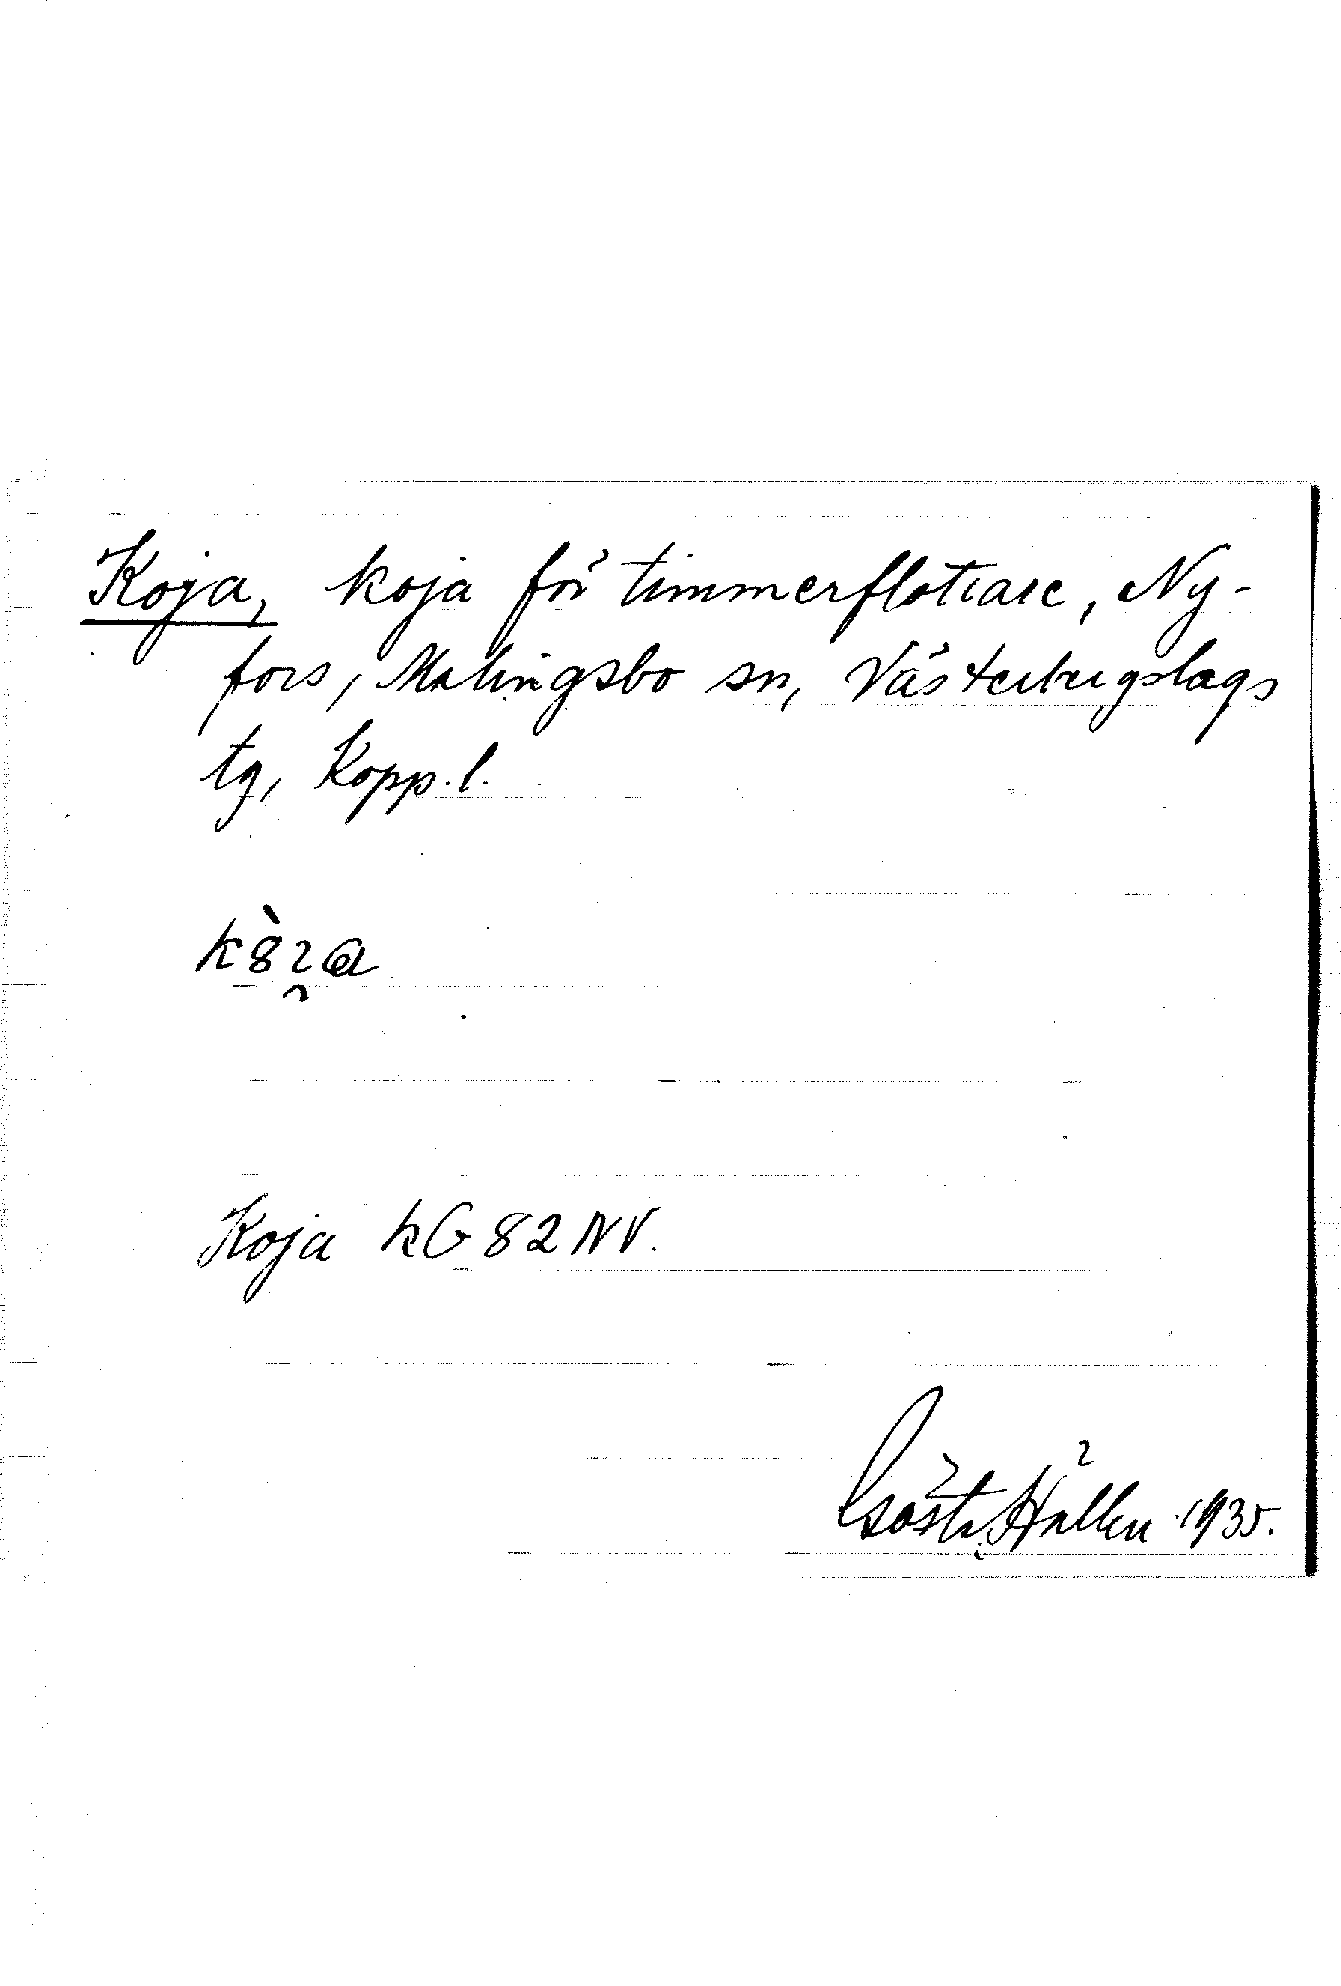 Koja, koja för timmerflottare, Ny-
fors, Malingsbo sn, Västerbergslags
tg, Kopp. l.
Koja kG 82 NV.
Gösta Hallen 1935.